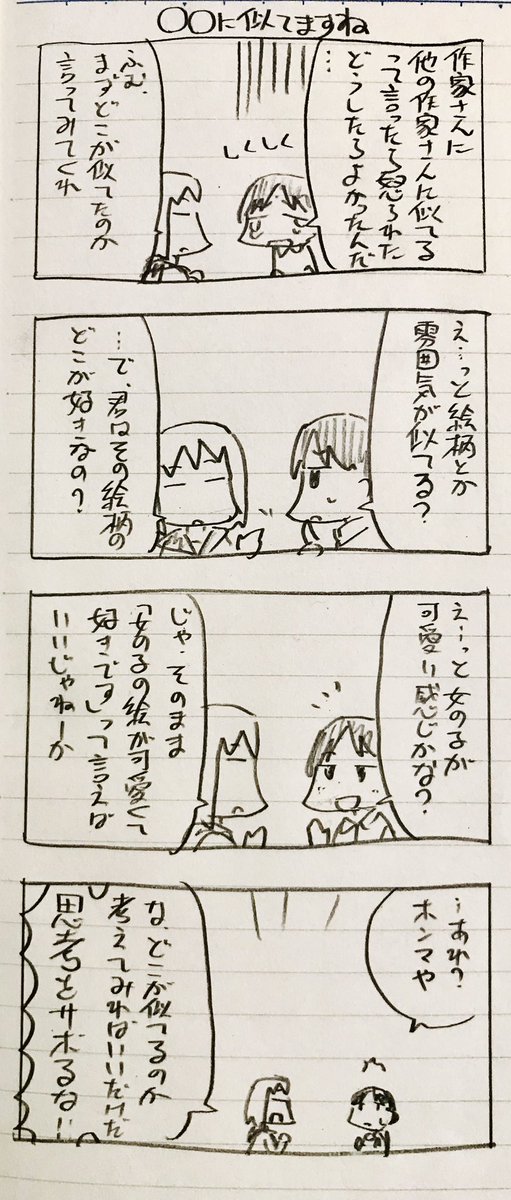 〇〇に似てますね
作家さんに
他の作家さんに似てる
って言ったら怒られた
どうしたらよかったんだ
…
しくしく
ふむ、
まずどこが似てたのか
言ってみてくれ
え…っと絵柄とか
雰囲気が似てる?
…で、君はその絵柄の
どこが好きなの?
え…っと女の子が
可愛い感じかな?
じゃ、そのまま
「女の子の絵が可愛くて
好きです」って言えば
いいじゃねーか
…あれ?
ホンマや
な、どこが似てるのか
考えてみればいいだけだ
思考をサボるな!!